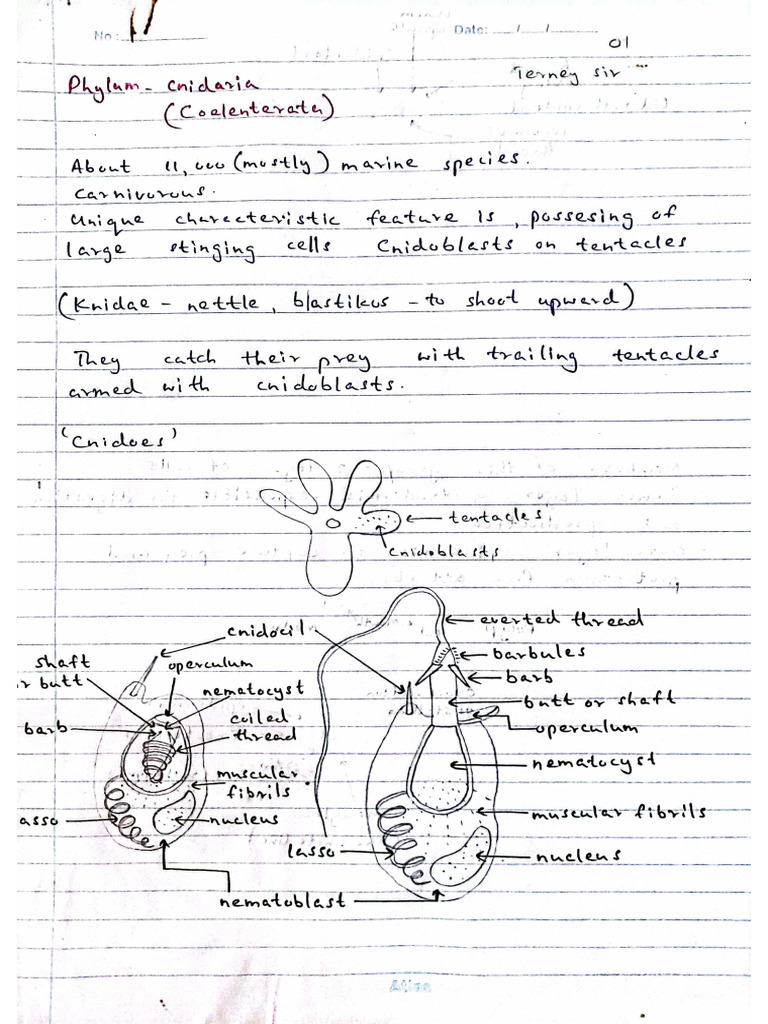 No:
Date: __/__/__
01
Terney sir
Phylum - Cnidaria
(Coelenterata)
About 11,000 (mostly) marine species.
Carnivorous.
Unique characteristic feature is, possesing of
large stinging cells Cnidoblasts on tentacles
(Knidae - nettle, blastikos - to shoot upward)
They catch their prey with trailing tentacles
armed with cnidoblasts.
'Cnidoes'
tentacles
cnidoblasts
cnidocil
everted thread
barbules
barb
butt or shaft
operculum
nematocyst
muscular fibrils
nucleus
shaft
r butt
operculum
nematocyst
coiled
thread
barb
muscular
fibrils
asso
nucleus
lasso
nematoblast
Atlas